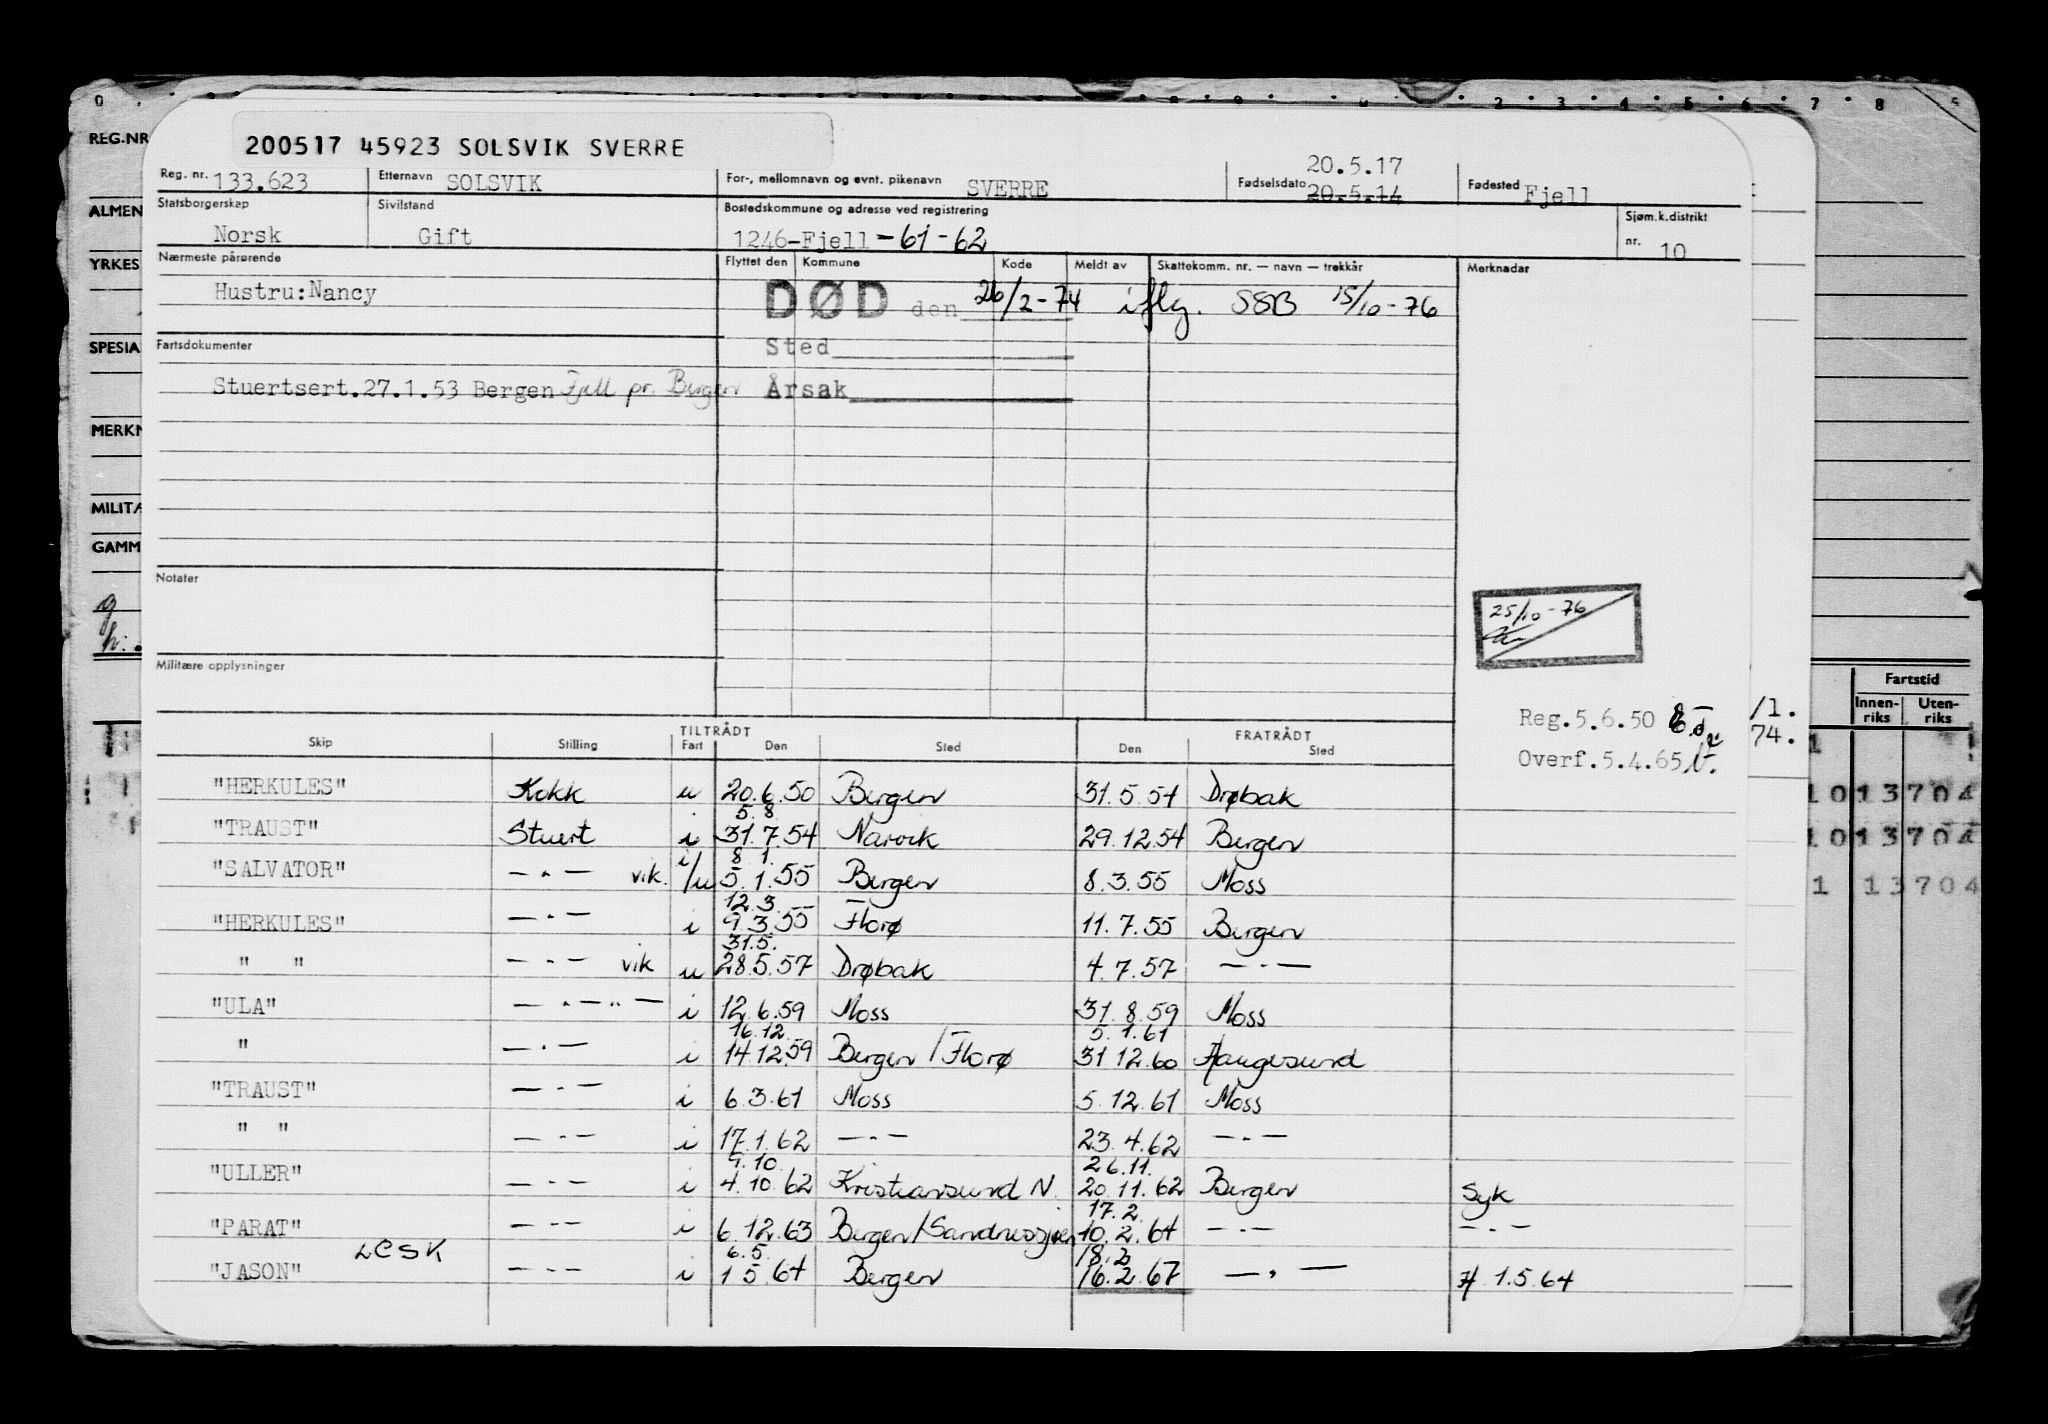 0 2 3 4 5 6 7 8 9
REG.NR
200517 45923 SOLSVIK SVERRE
Reg. nr. 133.623 Etternavn SOLSVIK For-, mellomnavn og evnt. pikenavn SVERRE Fødselsdato 20.5.17 20.5.14 Fødested Fjell
ALMEN
Statsborgerskap Norsk Sivilstand Gift Bostedskommune og adresse ved registrering 1246-Fjell - 61 - 62 Sjøm.k.distrikt nr. 10
YRKES
Nærmeste pårørende Flyttet den Kommune Kode Meldt av Skattekomm. nr. — navn — trekkår Merknadar
Hustru: Nancy DØD den 26/2-74 iflg. SSB 15/10-76
SPESIA
Fartsdokumenter Sted
Stuertsert.27.1.53 Bergen Fjell pr. Bergen Årsak
MERKN
MILITÆ
GAMM
Notater
25/10-76
Militære opplysninger
Fartstid
Innen-riks Uten-riks
Reg.5.6.50
/1.
74.
Overf.5.4.65
TILTRÅDT FRATRÅDT
Skip Stilling Fart Den Sted Den Sted
"HERKULES" Kokk u 20.6.50 Bergen 31.5.54 Drøbak
1013704
"TRAUST" Stuert i 5.8 31.7.54 Narvik 29.12.54 Bergen
1013704
"SALVATOR" — " — vik. i/u 8.1. 5.1.55 Bergen 8.3.55 Moss
1 13704
"HERKULES" — " — i 12.3. 9.3.55 Florø 11.7.55 Bergen
" " — " — vik u 31.5. 28.5.57 Drøbak 4.7.57 — " —
"ULA" — " — " — i 12.6.59 Moss 31.8.59 Moss
" — " — i 16.12. 14.12.59 Bergen/Florø 5.1.61 31.12.60 Haugesund
"TRAUST" — " — i 6.3.61 Moss 5.12.61 Moss
" " — " — i 17.1.62 — " — 23.4.62 — " —
"ULLER" — " — i 9.10. 4.10.62 Kristiansund N. 26.11. 20.11.62 Bergen Syk
"PARAT" — " — i 6.12.63 Bergen/Sandnessjøen 17.2. 10.2.64 — " — — " —
"JASON" LCSK — " — i 6.5. 1.5.64 Bergen 18.2 16.2.67 — " — H 1.5.64